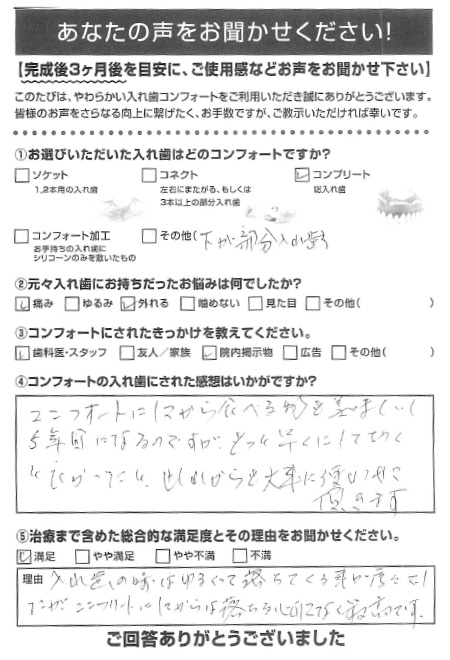 あなたの声をお聞かせください!
【完成後3ヶ月後を目安に、ご使用感などお声をお聞かせ下さい】
このたびは、やわらかい入れ歯コンフォートをご利用いただき誠にありがとうございます。
皆様のお声をさらなる向上に繋げたく、お手数ですが、ご教示いただければ幸いです。
①お選びいただいた入れ歯はどのコンフォートですか?
ソケット コネクト コンプリート
1,2本用の入れ歯 左右にまたがる、もしくは 総入れ歯
3本以上の部分入れ歯
コンフォート加工 その他(下が部分入れ歯
お手持ちの入れ歯に
シリコーンのみを敷いたもの
②元々入れ歯にお持ちだったお悩みは何でしたか?
痛み ゆるみ 外れる 噛めない 見た目 その他( )
③コンフォートにされたきっかけを教えてください。
歯科医・スタッフ 友人/家族 院内掲示物 広告 その他( )
④コンフォートの入れ歯にされた感想はいかがですか?
コンフォートにしてから食べる物も美味しい
5年目になるのですが、もっと早くにして
これからも大事に使わせて
頂きます
⑤治療まで含めた総合的な満足度とその理由をお聞かせください。
満足 やや満足 やや不満 不満
理由 入れ歯の時はゆるくて落ちてくる
コンフォートにしてからは落ちる心配なく最高です。
ご回答ありがとうございました